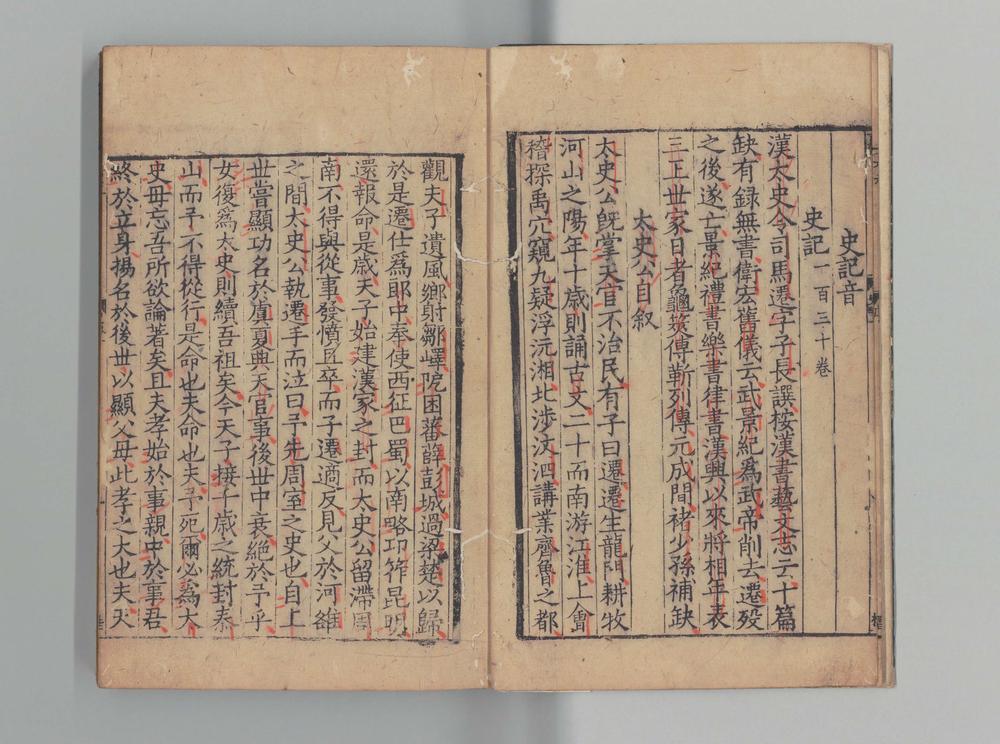 史記音
史記一百三十卷
漢太史令司馬遷字子長譔按漢書藝文志云十篇
缺有録無書衛宏舊儀云武景紀為武帝削去遷歿
之後遂亡景紀禮書樂書律書漢興以來將相年表
三王世家日者龜筴傳靳列傳元成間褚少孫補缺
太史公自叙
太史公既掌天官不治民有子曰遷遷生龍門耕牧
河山之陽年十歲則誦古文二十而南游江淮上會
稽探禹穴窺九疑浮沅湘北渉汶泗講業齊魯之都
觀夫子遺風鄉射鄒嶧阨困蕃薛彭城過梁楚以歸
於是遷仕爲郎中奉使西征巴蜀以南略卭笮昆明
還報命是歲天子始建漢家之封而太史公留滯周
南不得與從事發憤且卒而子遷適反見父於河雒
之間太史公執遷手而泣曰予先周室之史也自上
世嘗顯功名於虞夏典天官事後世中衰絶於予乎
女復爲太史則續吾祖矣今天子接千歲之統封泰
山而予不得從行是命也夫命也夫予死爾必爲太
史毋忘吾所欲論著矣且夫孝始於事親中於事君
終於立身揚名於後世以顯父母此孝之大也夫天